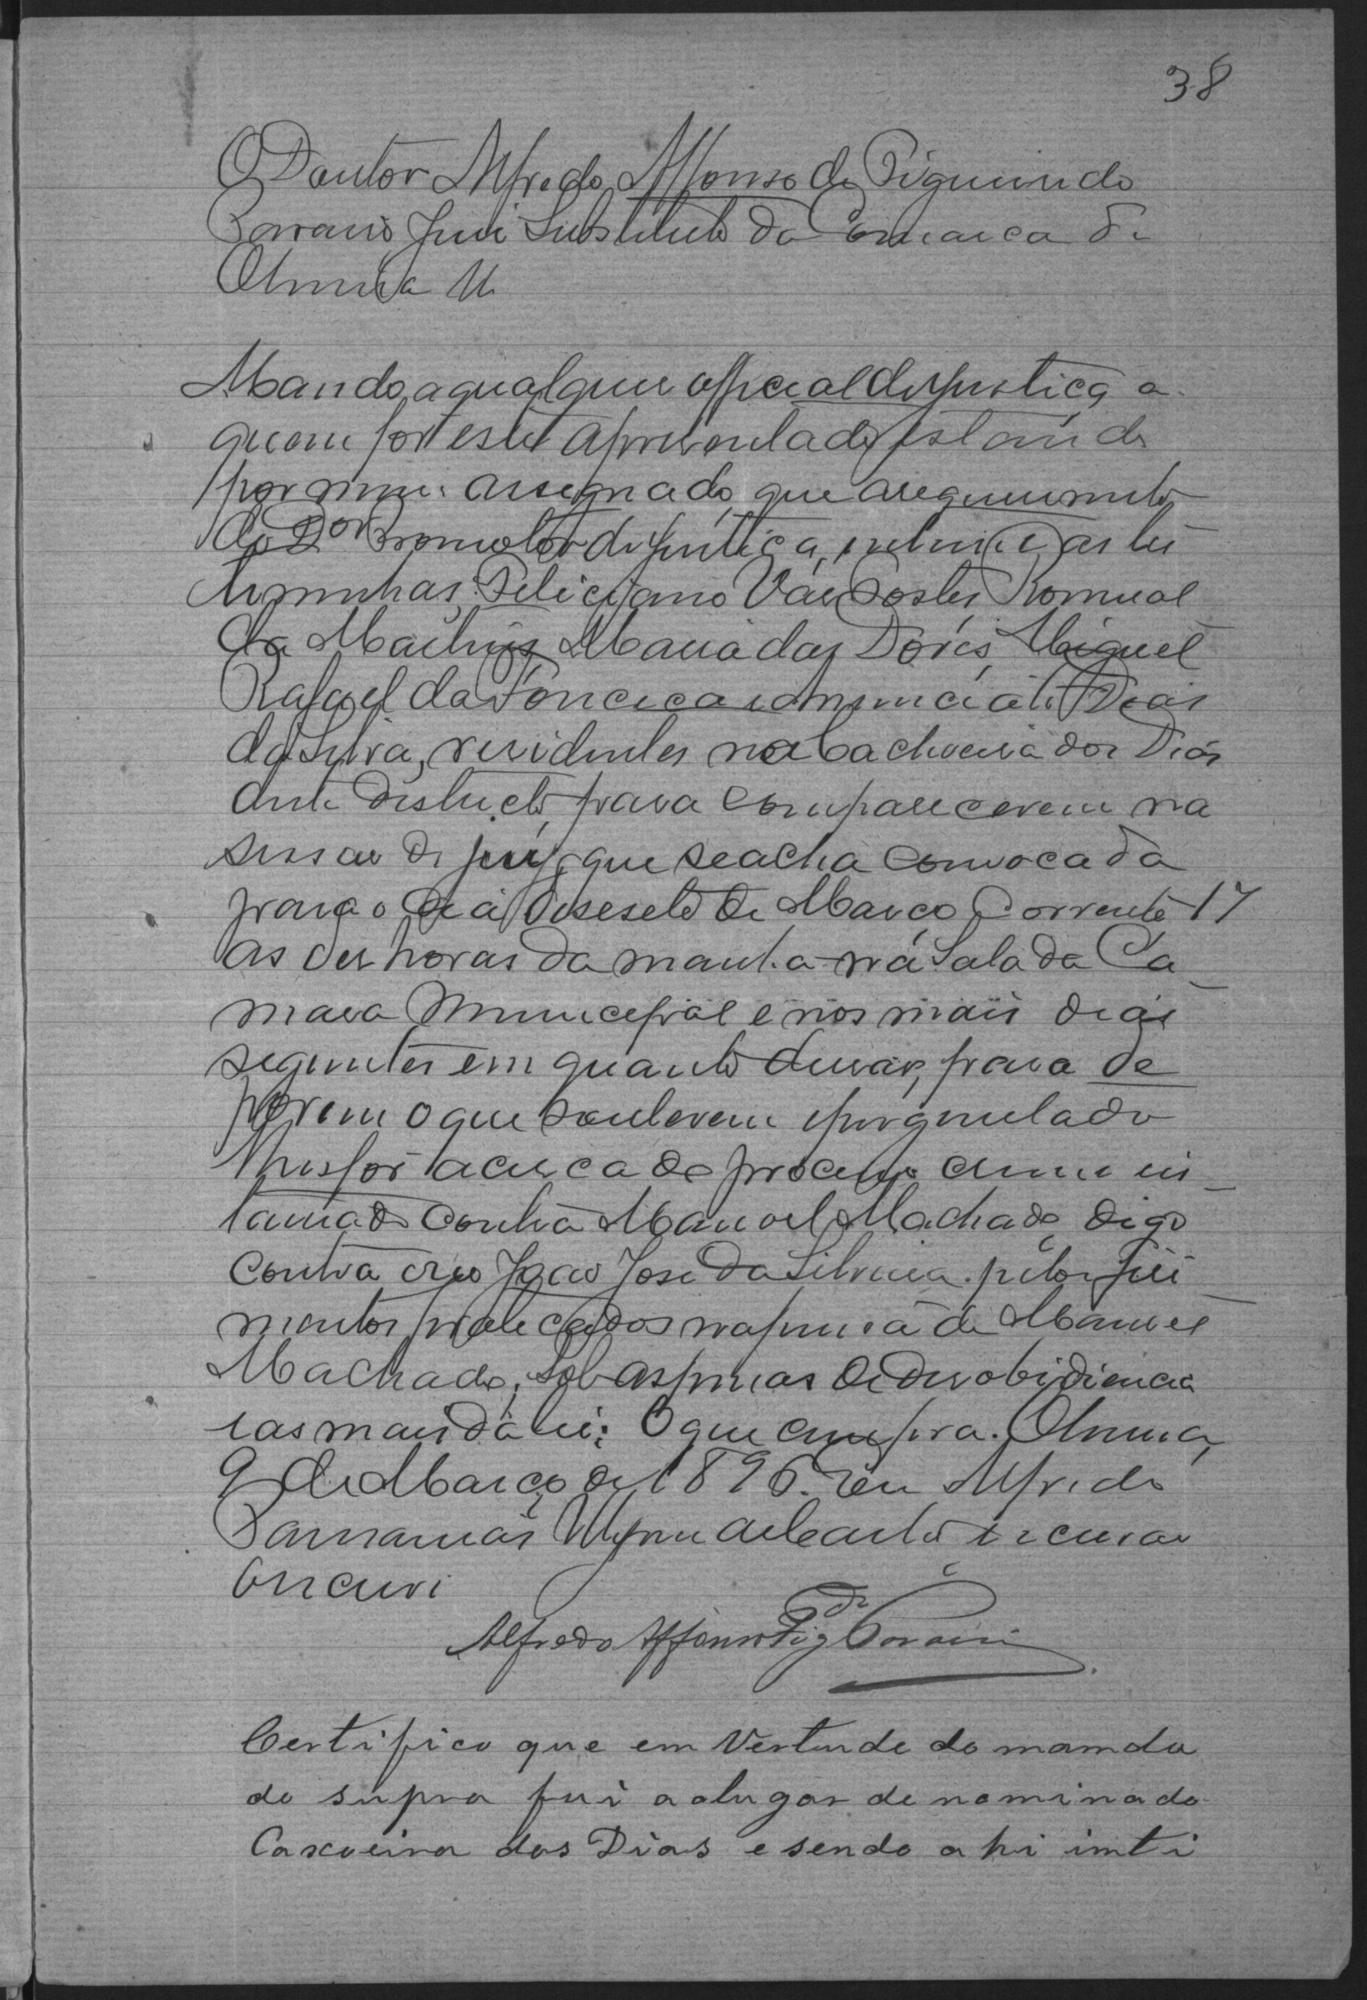 38
O Doutor Alfredo Affonso de Figueiredo
Parraiso Juiz Substituto da Comarca de
Mando a qualquer official de justiça a
quem for este apresentado estando
por mim assignado, que a requerimento
do Dor Promotor de justiça, intime as tes
timunhas: Feliciano Vaz Romual
da Martins Maria das Dores, Miguel
Rafael da Fonceca e Dias
da Silva, residentes na Cachoeira dos Dias
deste districto para comparecerem na
sessao de jury, que se acha convocada
para o dia desesete de Março Corrente 17
as des horas da manha na Sala da Ca
mara Municepial e nos mais dias
seguintes em quanto durar, para de
porem o que souberem e perguntado
lhes for acerca do processo crime ins
taurado contra Manoel Machado digo
contra o reo João José da Silveira pelos feri
mentos praticados na pessoa de Manoel
Machado, sob as penas de desobidiencia
e as mais da lei: O que cumpra.
9 de Março de 1896. Eu Alfredo
de Castro escrivao
escrevi
Alfredo Affonso Figdo Paraiso
Certifico que em Vertude do manda
do supra fui ao lugar denominado
Caxoeira dos Dias e sendo ahi inti